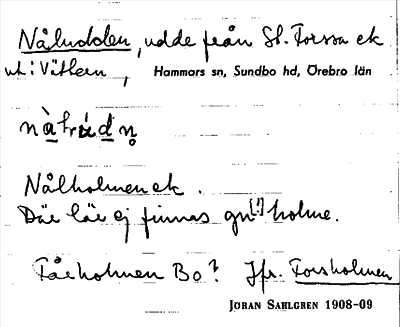 Nåludden, udde från St. Forssa ek
ut i Vättern, Hammars sn, Sundbo hd, Örebro län
Nålholmen ek.
Där lär ej finnas gn[!] holme.
Fårholmen Bo? Jfr. Forsholmen
JÖRAN SAHLGREN 1908-09